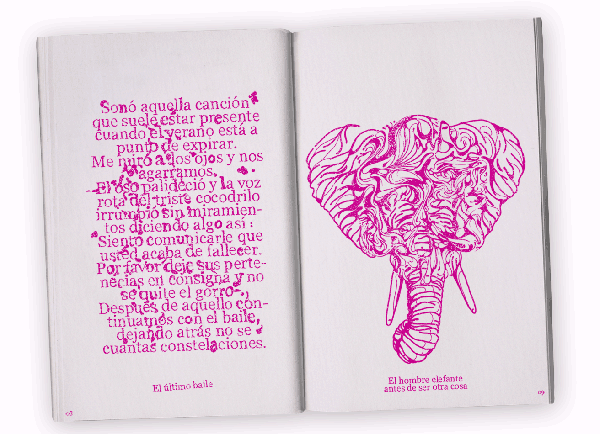 Sonó aquella canción
que suele estar presente
cuando el verano está a
punto de expirar.
Me miró a los ojos y nos
agarramos.
El oso palideció y la voz
rota del triste cocodrilo
irrumpió sin miramien-
tos diciendo algo así :
Siento comunicarle que
usted acaba de fallecer.
Por favor deje sus perte-
nencias en consigna y no
se quite el gorro.
Después de aquello con-
tinuamos con el baile,
dejando atrás no se
cuántas constelaciones.
El último baile
El hombre elefante
antes de ser otra cosa